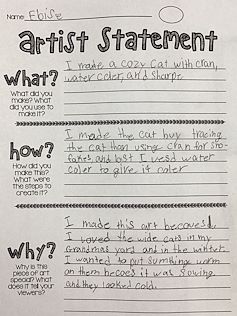 Name Eloise
artist STatement
what?
What did you make? What did you use to make it?
I made a cozy Cat with cran,
water coler, and sharpe
how?
How did you make this? What were the steps to create it?
I made the cat buy tracing
the cat than using cran for sno-
fakes, and last I uesd water
coler to give it coler
Why?
Why is this piece of art special? What does it tell your viewers?
I made this art becoves
I loved the wide cats in my
Grandmas yard and in the winter
I wanted to put sumthing worm
on them becoes it was snowing
and they looked cold.